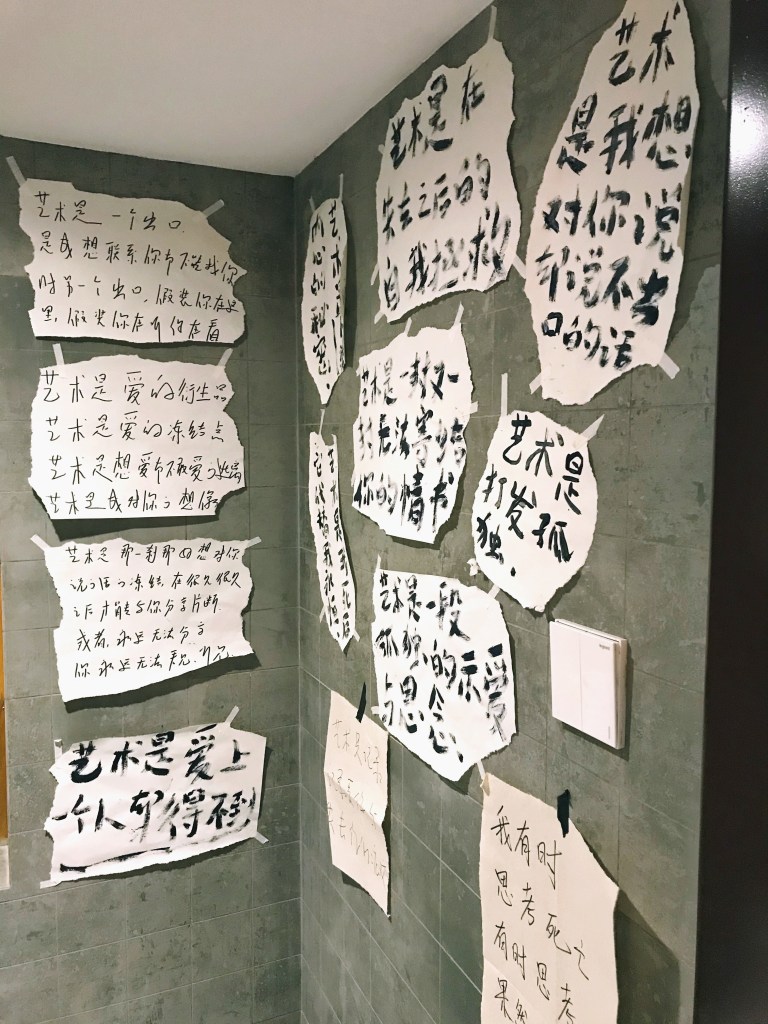 艺术是一个出口.
是我想联系你却不能找你
时另一个出口,假装你在这
里,假装你在听你在看
艺术是爱的衍生品
艺术是爱的冻结点
艺术是想爱却不敢爱
艺术是我对你的想像
艺术是那一刹那的想对你
说的话的冻结,在很久很久
之后才能与你分享片断.
或者,永远无法分享
你永远无法看见.听见.
艺术是爱上
一个人却得不到
艺术
内心的秘密.
艺术是在
失去之后的
自我拯救
艺术
是我想
对你说
却说不出
口的话
艺术是一封又一
封无法寄给
你的情书
艺术是
打发孤
独.
艺术是一段
孤独的示爱
与思念.
艺术是记录
我有时
思考死亡
有时思考
果然